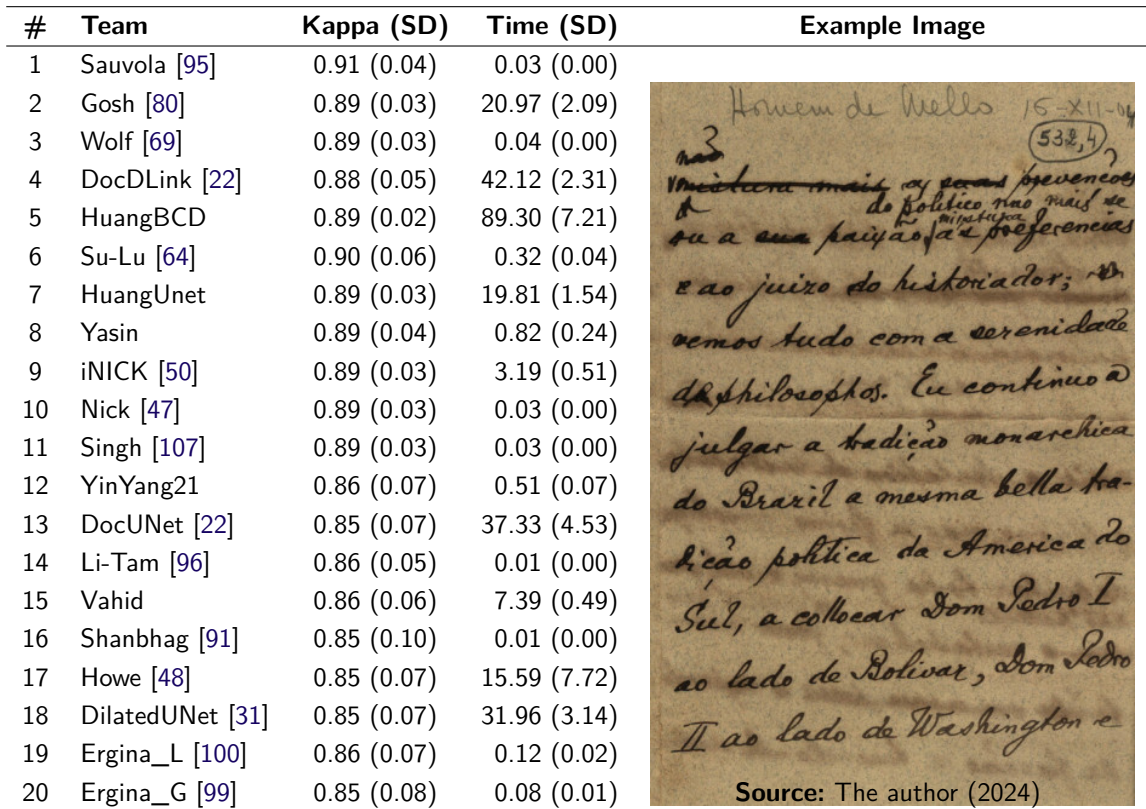 # Team Kappa (SD) Time (SD) Example Image
1 Sauvola [95] 0.91 (0.04) 0.03 (0.00)
2 Gosh [80] 0.89 (0.03) 20.97 (2.09)
3 Wolf [69] 0.89 (0.03) 0.04 (0.00)
4 DocDLink [22] 0.88 (0.05) 42.12 (2.31)
5 HuangBCD 0.89 (0.02) 89.30 (7.21)
6 Su-Lu [64] 0.90 (0.06) 0.32 (0.04)
7 HuangUnet 0.89 (0.03) 19.81 (1.54)
8 Yasin 0.89 (0.04) 0.82 (0.24)
9 iNICK [50] 0.89 (0.03) 3.19 (0.51)
10 Nick [47] 0.89 (0.03) 0.03 (0.00)
11 Singh [107] 0.89 (0.03) 0.03 (0.00)
12 YinYang21 0.86 (0.07) 0.51 (0.07)
13 DocUNet [22] 0.85 (0.07) 37.33 (4.53)
14 Li-Tam [96] 0.86 (0.05) 0.01 (0.00)
15 Vahid 0.86 (0.06) 7.39 (0.49)
16 Shanbhag [91] 0.85 (0.10) 0.01 (0.00)
17 Howe [48] 0.85 (0.07) 15.59 (7.72)
18 DilatedUNet [31] 0.85 (0.07) 31.96 (3.14)
19 Ergina_L [100] 0.86 (0.07) 0.12 (0.02)
20 Ergina_G [99] 0.85 (0.08) 0.08 (0.01)
Homem de Mello 15-XII-04
532,4
não
mistura mais as suas prevenções
do politico não mais se
mistura
ou a sua paixão, ás preferencias
e ao juizo do historiador;
vemos tudo com a serenidade
de philosophos. Eu continuo a
julgar a tradição monarchica
do Brazil a mesma bella tra-
dição politica da America do
Sul, a collocar Dom Pedro I
ao lado de Bolivar, Dom Pedro
II ao lado de Washington e
Source: The author (2024)